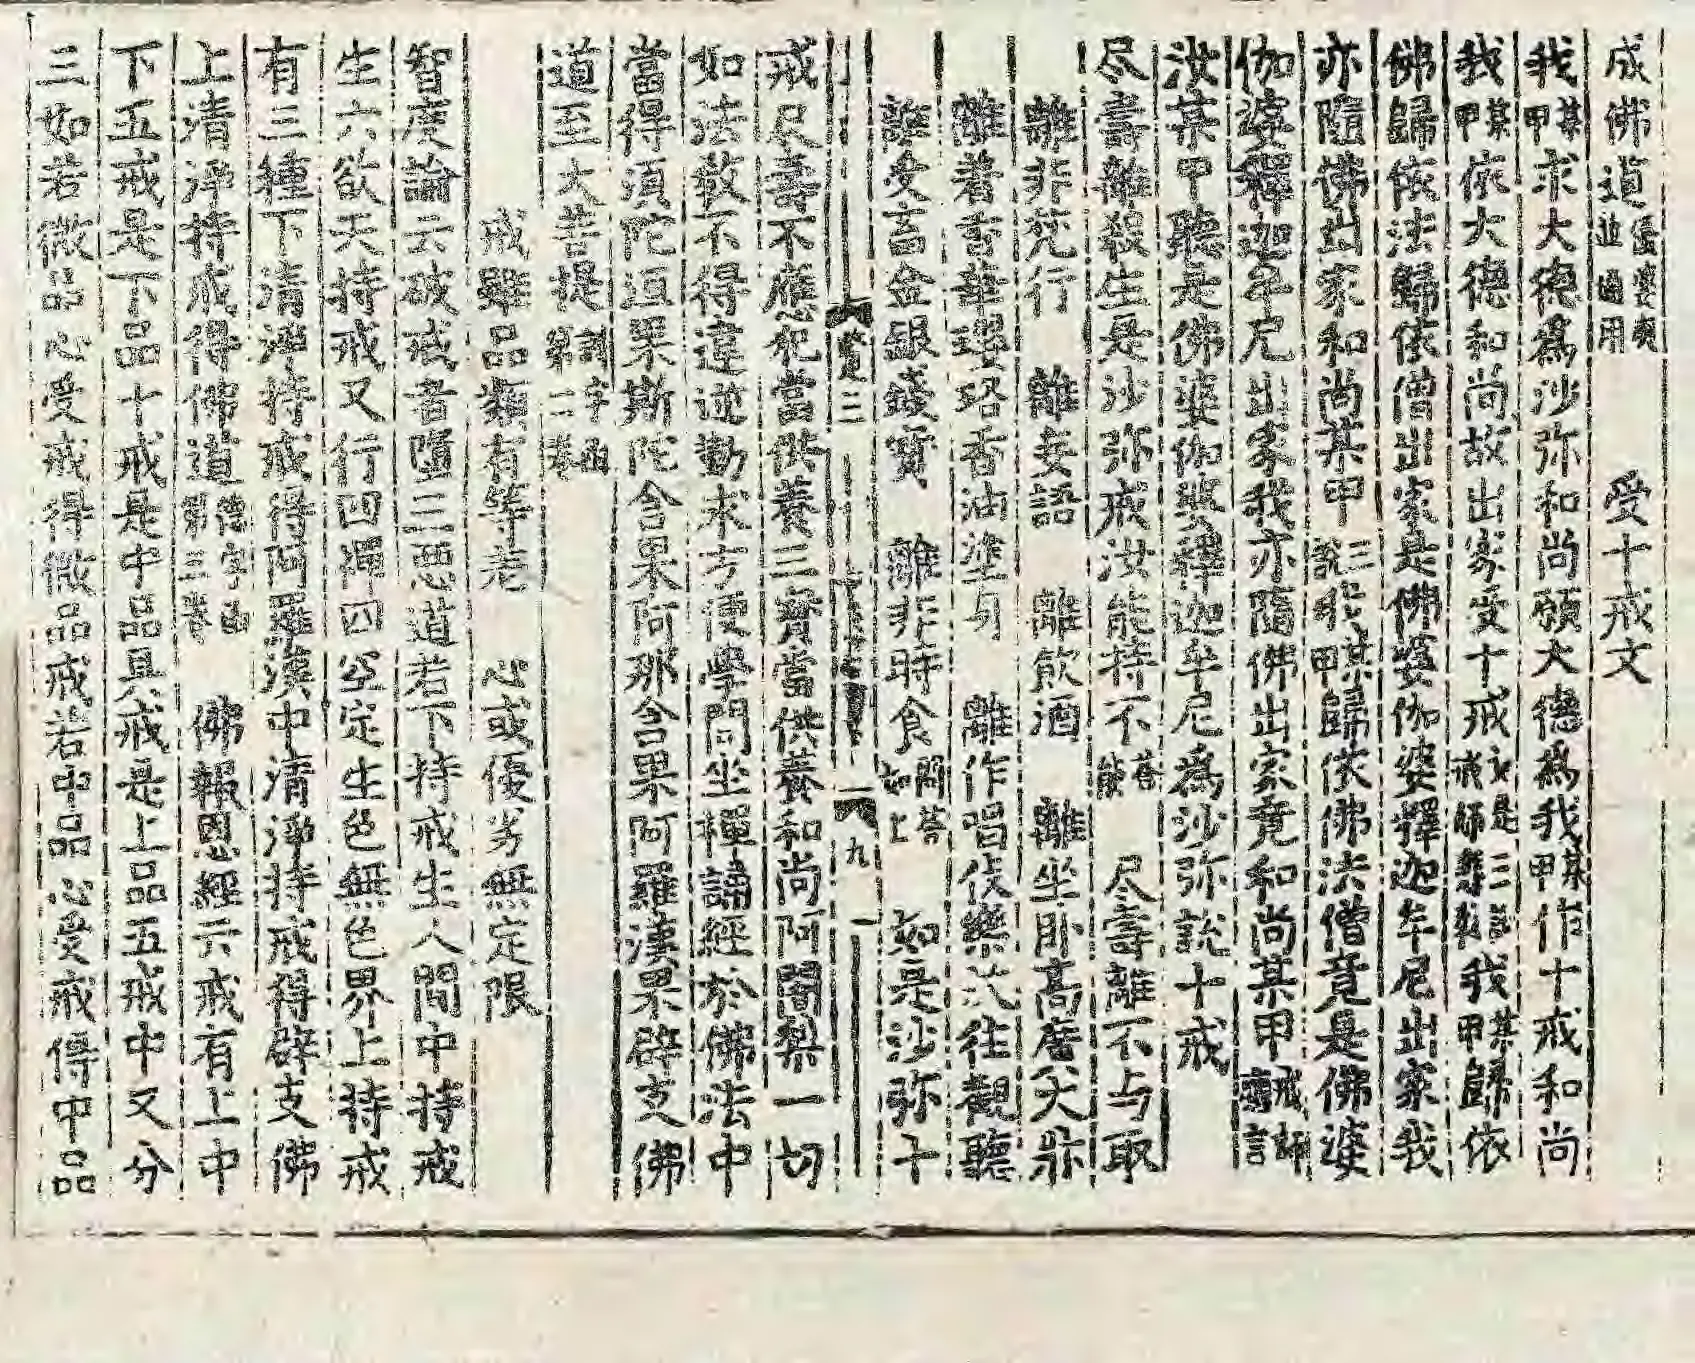 成佛道優婆夷迦幽用　受十戒文
我某甲求大德爲沙弥和尚願大德爲我某甲作十戒和尚
我某甲依大德和尚故出家受十戒如是三語戒師我某甲歸依
佛歸依法歸依僧出家是佛婆伽婆釋迦牟尼出家我
亦隨佛出家和尚某甲三說我某甲歸依佛法僧竟是佛婆
伽婆釋迦牟尼出家我亦隨佛出家竟和尚某甲戒師言
汝某甲聽是佛婆伽婆釋迦牟尼爲沙弥說十戒
尽壽離殺生是沙弥戒汝能持不荅能　尽壽離不与取
離非梵行　離妄語　離飲酒　離坐卧高廣大牀
離着香華瓔珞香油塗身　離作唱伎樂及往觀聽
離受畜金銀錢寶　離非時食問荅如上　如是沙弥十
覽三　九
戒尽壽不應犯當供養三寶當供養和尚阿闍梨一切
如法敎不得違逆勤求方便學問坐禪誦經於佛法中
當得須陀洹果斯陀含果阿那含果阿羅漢果辟支佛
道至大菩提字函第二卷
戒雖品類有等差　心或優劣無定限
智度論云破戒者墮三惡道若下持戒生人間中持戒
生六欲天持戒又行四禪四空定生色無色界上持戒
有三種下清淨持戒得阿羅漢中清淨持戒得辟支佛
上清淨持戒得佛道德字函第三卷　佛報恩經云戒有上中
下五戒是下品十戒是中品具戒是上品五戒中又分
三如若微品心受戒得微品戒若中品心受戒得中品